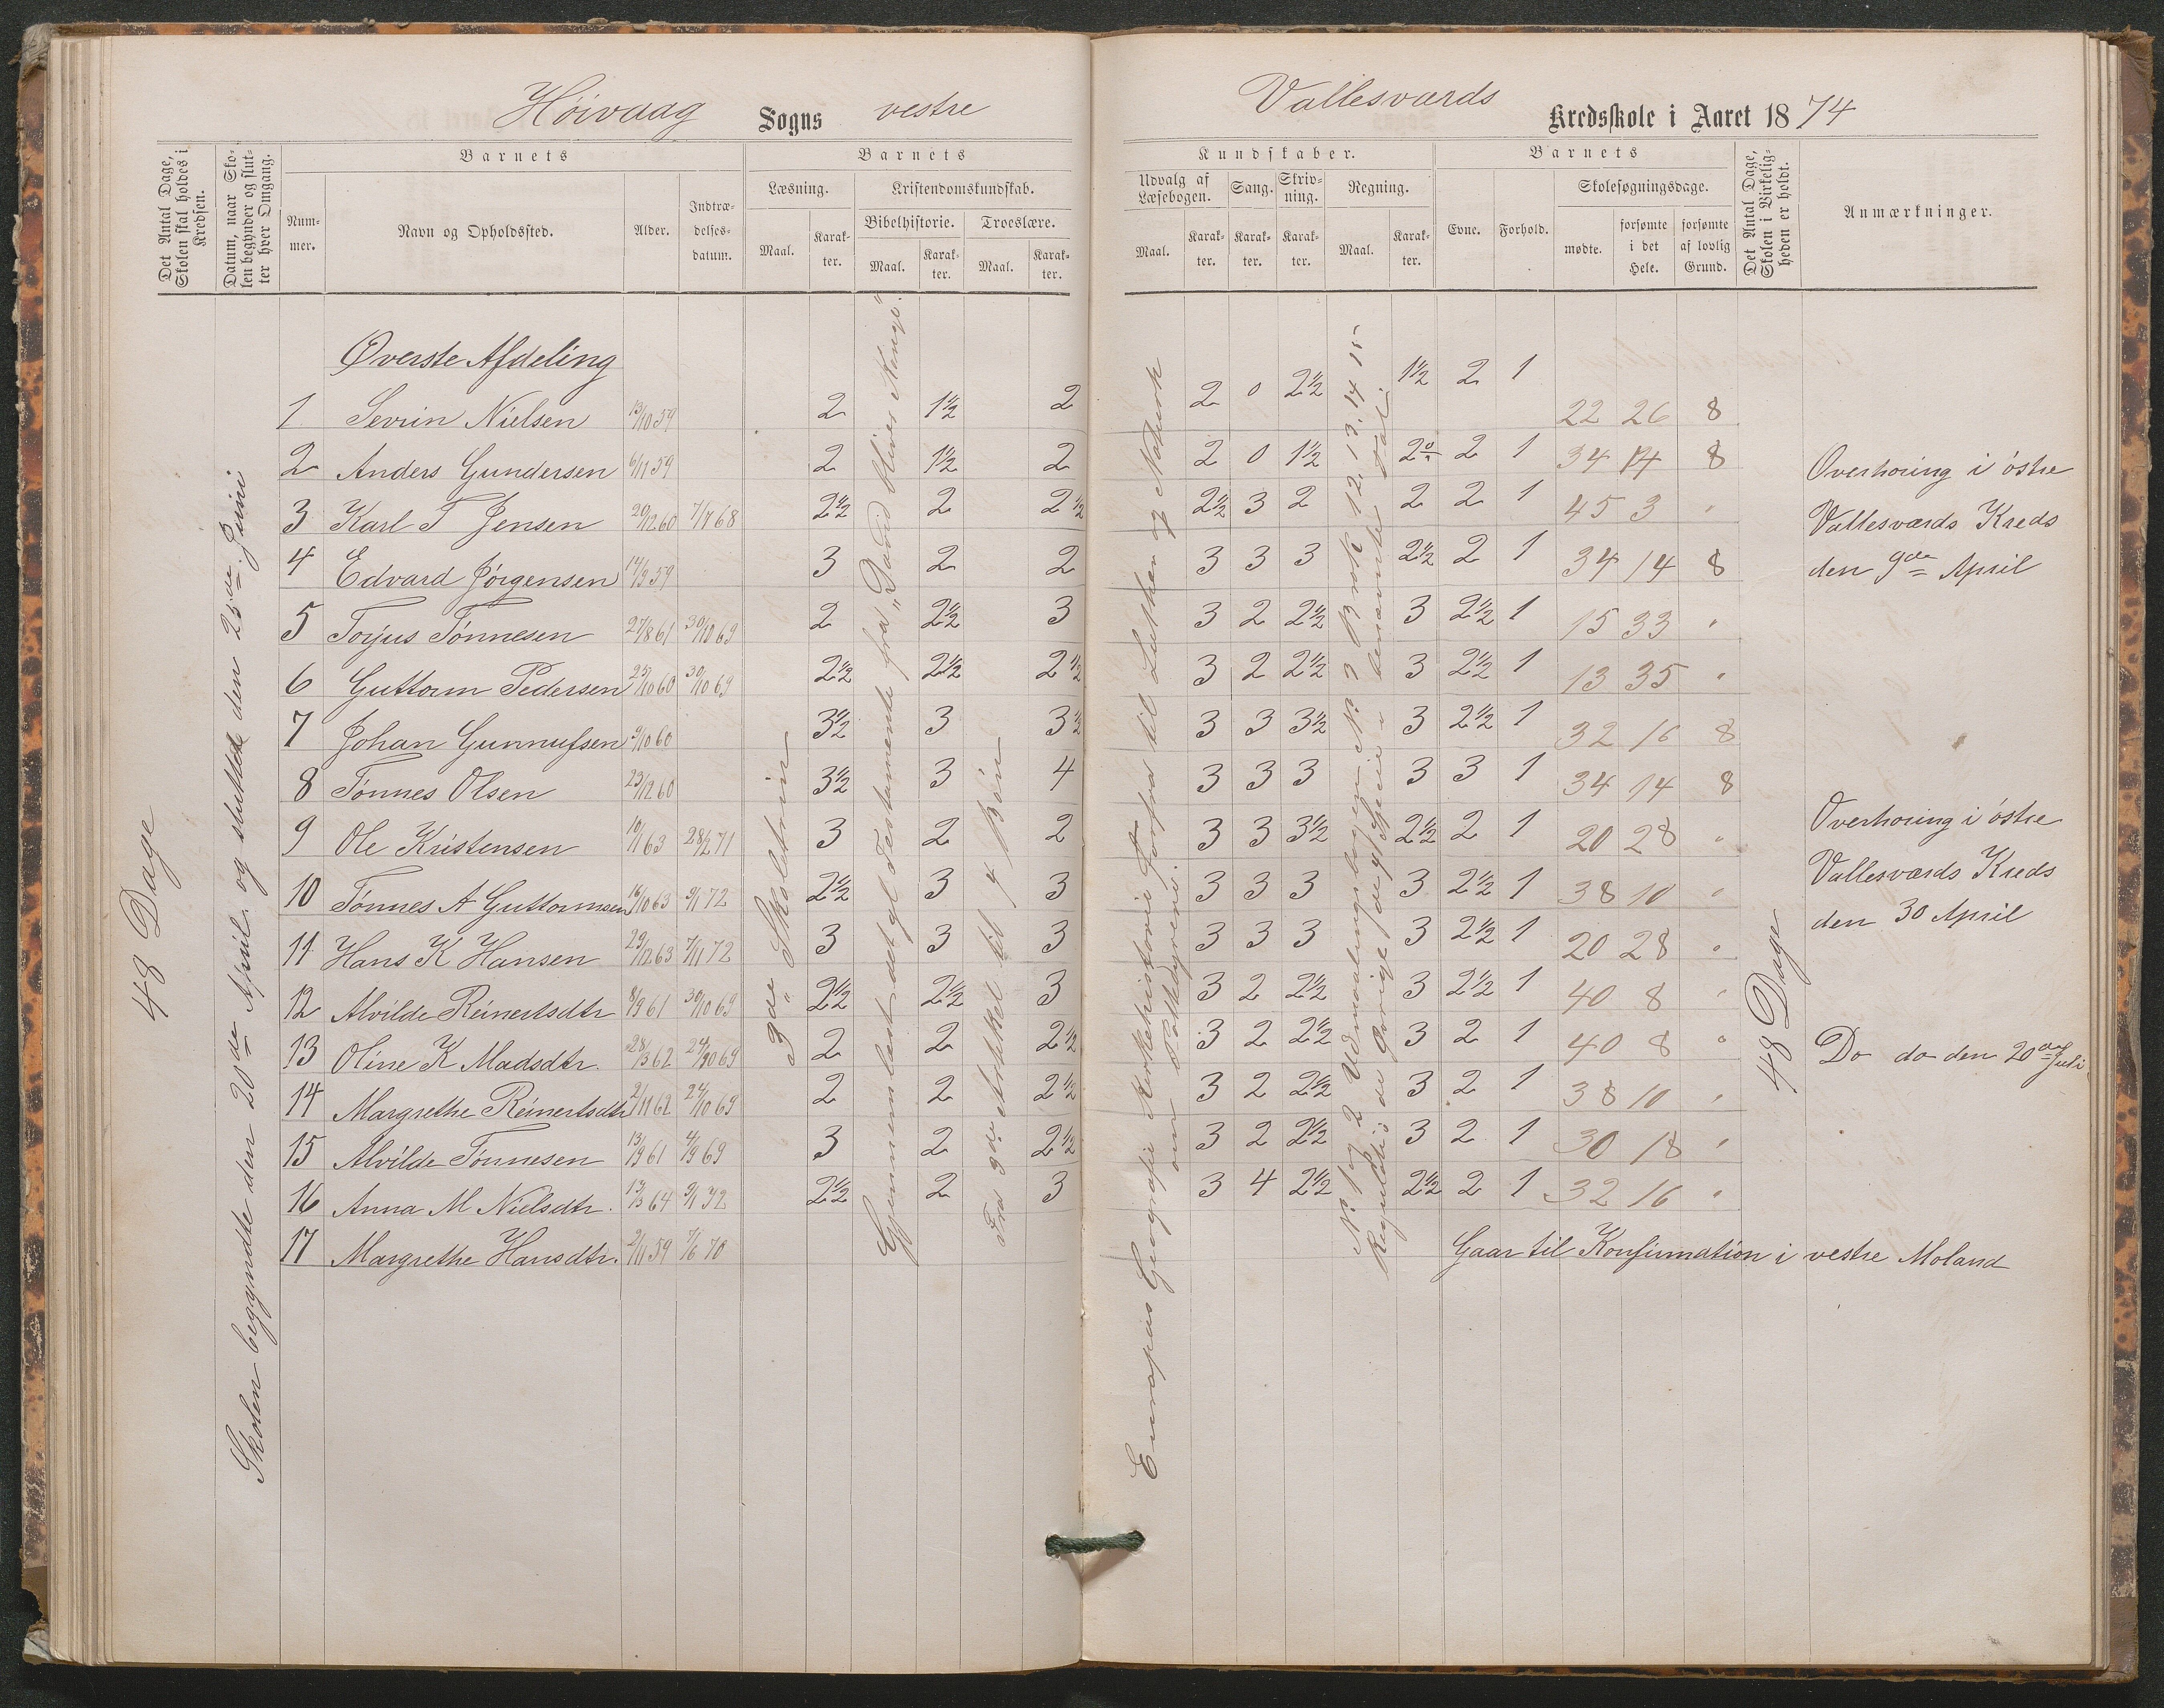 Høivaag Sogns vestre
Vallesværds Kredsskole i Aaret 1874
Det Antal Dage, Skolen skal holdes i Kredsen.
Datum, naar Skolen begynder og slutter hver Omgang.
Barnets
Nummer.
Navn og Opholdssted.
Alder.
Indtrædelsesdatum.
Barnets
Læsning.
Maal.
Karakter.
Kristendomskundskab.
Bibelhistorie.
Maal.
Karakter.
Troeslære.
Maal.
Karakter.
Kundskaber.
Udvalg af Læsebogen.
Maal.
Karakter.
Sang.
Karakter.
Skrivning.
Karakter.
Regning.
Maal.
Karakter.
Barnets
Evne.
Forhold.
Skolesøgningsdage.
mødte.
forsømte i det Hele.
forsømte af lovlig Grund.
Det Antal Dage, Skolen i Virkeligheden er holdt.
Anmærkninger.
48 Dage
Skolen begyndte den 20de April og sluttede den 25de Juni
Øverste Afdeling
1 Sevrin Nielsen 13/10 59 2 1½ 2 2 0 2½ 1½ 2 1 22 26 8
2 Anders Gundersen 6/11 59 2 1½ 2 2 0 1½ 2 2 1 34 14 8
3 Karl T Jensen 29/12 60 7/7 68 2½ 2 2½ 2½ 3 2 2 2 1 45 3 "
4 Edvard Jørgensen 14/3 59 3 2 2 3 3 3 2½ 2 1 34 14 8
5 Torjus Tønnesen 27/8 61 30/10 69 2 2½ 3 3 2 2½ 3 2½ 1 15 33 "
6 Guttorm Pedersen 25/10 60 30/10 69 2½ 2½ 2½ 3 2 2½ 3 2½ 1 13 35 "
7 Johan Gunnufsen 9/10 60 3½ 3 3½ 3 3 3½ 3 2½ 1 32 16 8
8 Tønnes Olsen 23/12 60 3½ 3 4 3 3 3 3 3 1 34 14 8
9 Ole Kristensen 10/1 63 28/2 71 3 2 2 3 3 3½ 2½ 2 1 20 28 "
10 Tønnes A Guttormsen 16/10 63 9/1 72 2½ 3 3 3 3 3 3 2½ 1 38 10 "
11 Hans K Hansen 29/12 63 7/11 72 3 3 3 3 3 3 3 2½ 1 20 28 "
12 Alvilde Reinertsdtr 8/9 61 30/10 69 2½ 2½ 3 3 2 2½ 3 2½ 1 40 8 "
13 Oline K Madsdtr. 28/3 62 24/10 69 2 2 2½ 3 2 2½ 3 2 1 40 8 "
14 Margrethe Reinertsdtr 2/11 62 24/10 69 2 2 2½ 3 2 2½ 3 2 1 38 10 "
15 Alvilde Tønnesen 13/9 61 4/9 69 3 2 2½ 3 2 2½ 3 2 1 30 18 "
16 Anna M Nielsdtr. 13/3 64 9/1 72 2½ 2 3 3 4 2½ 2½ 2 1 32 16 "
17 Margrethe Hansdtr. 2/11 59 7/6 70 Gaar til Konfirmation i vestre Moland
3de Skoletrin
Gjennemlæst det gl Testamente fra "David
Fra 3de Artikkel til 4 Bøn
Europas Geografi Kirkehistorie forfra til Luther og Naturh
om Pattedyrene.
No 1 og 2 Udmaalingslæren No 3 Brøk 12. 13. 14. 15
Reguldetri; de øvrige
48 Dage
Overhøring i østre
Vallesværds Kreds
den 9de April
Overhøring i østre
Vallesværds Kreds
den 30 April
Do do den 20de Juli